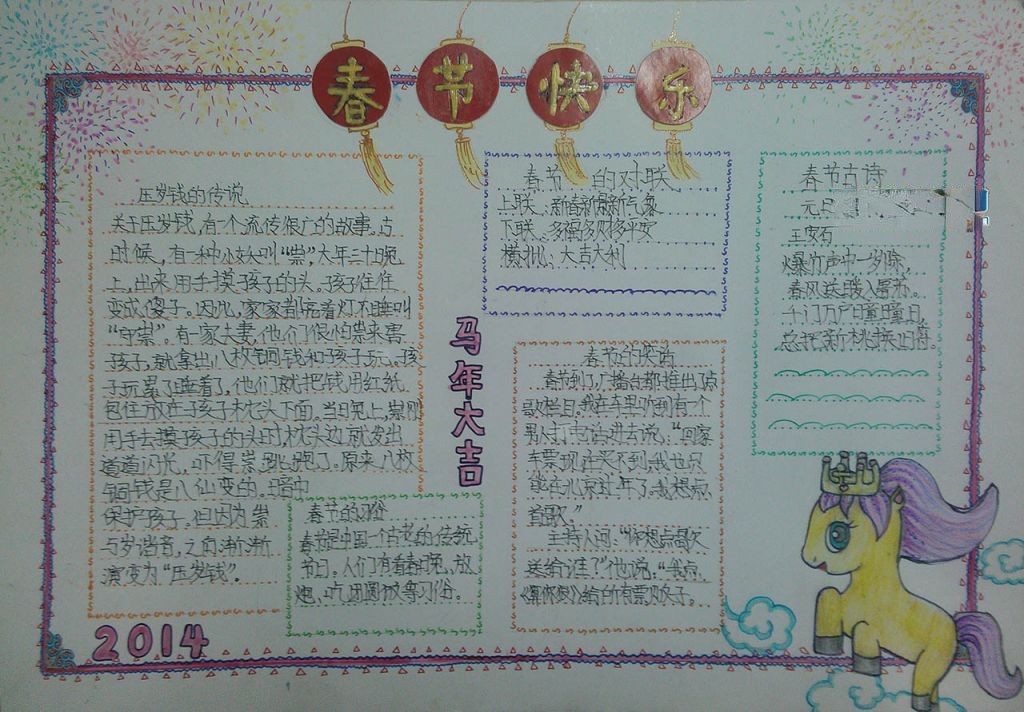 春节快乐
压岁钱的传说
关于压岁钱,有一个流传很广的故事。古
时候,有一种小妖叫“祟”,大年三十晚
上,出来用手摸孩子的头。孩子往往
变成傻子。因此,家家都亮着灯不睡叫
“守祟”。有一家夫妻,他们很怕祟来害
孩子,就拿出八枚铜钱和孩子玩。孩
子玩累了睡着了,他们就把钱用红纸
包住放在孩子枕头下面。当日晚上,祟刚
用手去摸孩子的头时枕头边就发出
道道闪光,吓得祟跳跑了。原来八枚
铜钱是八仙变的。暗中
保护孩子。但因为祟
与岁谐音,之角渐渐
演变为“压岁钱”。
春节的习俗
春节是中国一个古老的传统
节日。人们有看春晚,放
炮、吃团圆饭等习俗。
2014
春节 的对联
上联:新春新景新气象
下联:多福多财多平安
横批:大吉大利
马年大吉
春节的笑话
春节到了,广播台都推出了点
歌栏目。我在车里听到有一个
男人打电话进去说:“回家
车票现在买不到,我也只
能在北京过年了,我想点
首歌。”
主持人问:“你想点歌
送给谁?”他说:“我点
《算你狠》给所有票贩子。
春节古诗
元日
王安石
爆竹声中一岁除,
春风送暖入屠苏。
千门万户曈曈日,
总把新桃换旧符。